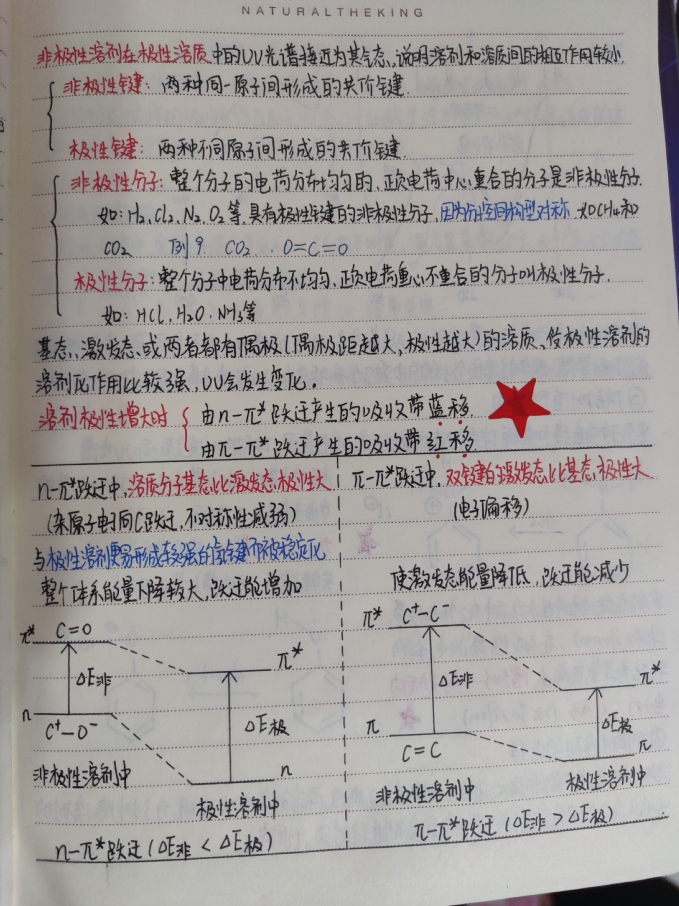 NATURALTHEKING
非极性溶剂在极性溶质中的UV光谱接近为其气态、说明溶剂和溶质间的相互作用较小.
非极性键：两种同一原子间形成的共价键
极性键：两种不同原子间形成的共价键
非极性分子：整个分子的电荷分布均匀的、正负电荷中心重合的分子是非极性分子.
如：H₂、Cl₂、N₂、O₂等、具有极性键的非极性分子，因为分子空间构型对称 如CH₄和
CO₂ CO₂ O=C=O
极性分子：整个分子中电荷分布不均匀、正负电荷重心不重合的分子叫极性分子.
如：HCl、H₂O、NH₃等
基态、激发态、或两者都有偶极(偶极距越大、极性越大)的溶质、使极性溶剂的
溶剂化作用比较强，UV会发生变化。
溶剂极性增大时 由n-π*跃迁产生的吸收带蓝移
由π-π*跃迁产生的吸收带红移
n-π*跃迁中，溶质分子基态比激发态极性大
(杂原子电子向C跃迁，不对称性减弱)
与极性溶剂更易形成较强的氢键而被稳定化
整个体系能量下降较大，跃迁能增加
π* C=O
π*
ΔE非
n
C⁺-O⁻
ΔE极
n
非极性溶剂中
极性溶剂中
n-π*跃迁(ΔE非 < ΔE极)
π-π*跃迁中，双键的激发态比基态极性大
(电子偏移)
使激发态能量降低，跃迁能减少
π* C⁺-C⁻
π*
ΔE非
ΔE极
π
π
C=C
非极性溶剂中
极性溶剂中
π-π*跃迁(ΔE非 > ΔE极)